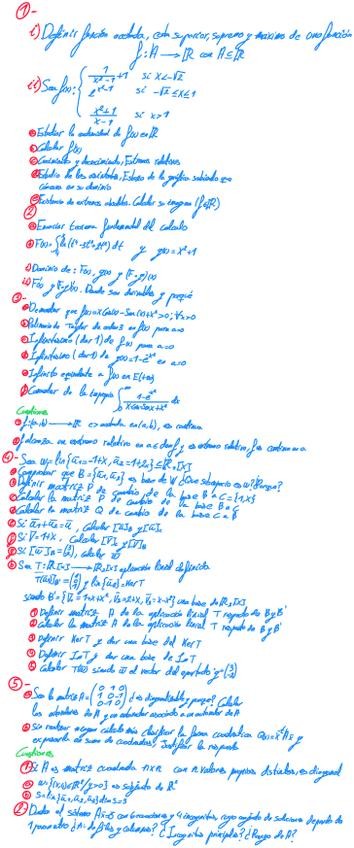 ①-
i) Definir función acotada, cota superior, supremo y máximo de una función
f: A → ℝ con A ⊆ ℝ
ii) Sea f(x):
1/(x²-1) +1 si x<-√2
e^(x²-1) si -√2≤x≤1
(x²+1)/(x-1) si x>1
Estudiar la continuidad de f(x) en ℝ
Calcular f'(x)
Crecimiento y decrecimiento, Extremos relativos
Estudio de las asíntotas, Esbozo de la gráfica sabiendo que
cóncava en su dominio
Existencia de extremos absolutos. Calcular su imagen (f(ℝ))
②
Enunciar teorema fundamental del cálculo
y g(x) = x²+1
i) Dominio de: F(x), g(x) y (F∘g)(x)
F'(x) y (F∘g)'(x). Donde son derivables y porqué
③-
Demostrar que f(x)=xCos(x)-Sen(x)+x³>0; ∀x>0
Polinomio Taylor de orden 3 en f(x) para a=0
Infinitésimo (dar 1) de f(x) para a=0
Infinitésimo (dar 1) de g(x)=1-e^(-x²) en a=0
Infinito equivalente a f(x) en E(+∞)
Carácter de la impropia
Cuestiones
f:(a,b) → ℝ es acotada en (a,b), es continua
f alcanza un extremo relativo en a ∈ dom f y es extremo relativo, f es continua en a
④- Sea W=lin{ū₁=-1+x, ū₂=1+2x} ⊆ ℝ₂[x]
Comprobar que B={ū₁,ū₂} es base de W ¿Que subespacio es W? ¿Porque?
Definir matriz P de cambio de base B a C={1,x}
Calcular la matriz P de cambio de la base B a C
Calcular la matriz Q de cambio de la base C a B
Si ū₁+ū₂=ū, calcular [ū]B y [ū]c
Si v̄=1+x, calcular [v̄]c y [v̄]B
calcular w̄
Sea T: ℝ₂[x] → ℝ₂[x] aplicación lineal definida
una base de ℝ₂[x]
Definir matriz A de la aplicación lineal T respecto de B y B'
Calcular matriz A de la aplicación lineal T respecto de B y B'
Definir Ker T y dar una base del Ker T
Definir Im T y dar una base de Im T
⑤-
Sea la matriz A= ¿es diagonalizable y porque? Calcular
los autovalores de A y un autovector asociado a un autovalor de A
Sin realizar ningún cálculo más clasificar la forma cuadrática Q(x)=xᵗAx̄ y
expresarla en suma de cuadrados, justificar la respuesta
Cuestiones
① Si A es matriz cuadrada nxn con n valores propios distintos, es diagonal
② Dado el sistema Ax̄=b con 6 ecuaciones y 4 incógnitas, cuyo conjunto de soluciones depende de
1 parámetro ¿A: de filas y columnas? ¿Incógnitas principales? ¿Rango de A?